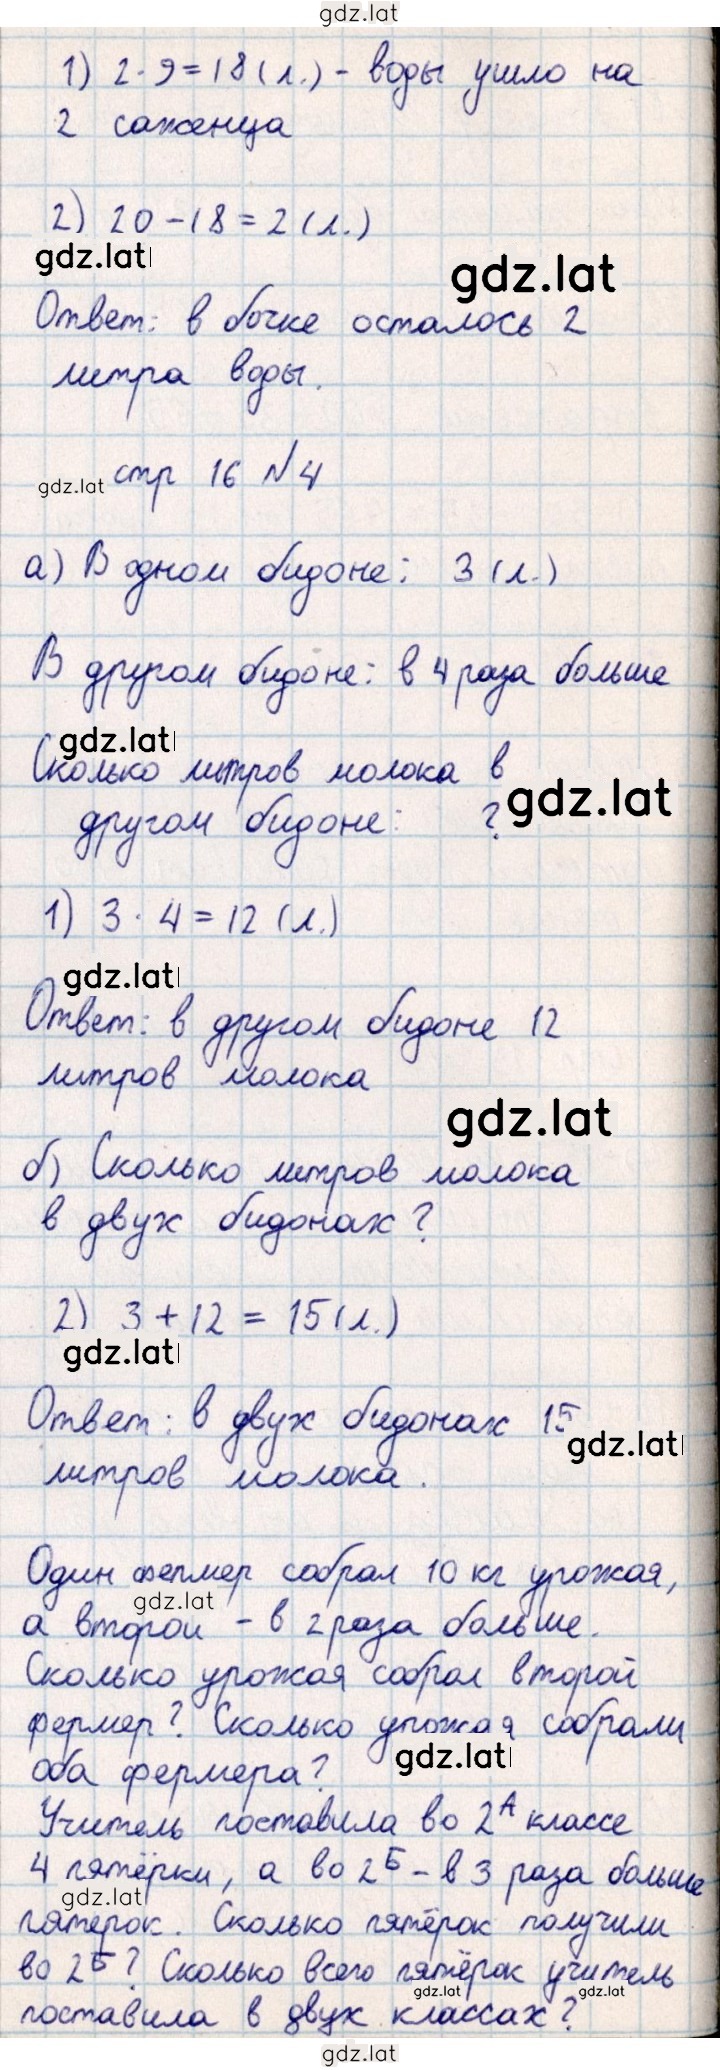 gdz.lat
1) 2·9=18(л.) - воды ушло на
2 саженца
2) 20-18=2(л.)
gdz.lat
gdz.lat
Ответ: в бочке осталось 2
литра воды.
gdz.lat стр 16 №4
а) В одном бидоне: 3(л.)
В другом бидоне: в 4 раза больше
gdz.lat
Сколько литров молока в
gdz.lat
другом бидоне: ?
1) 3·4=12(л.)
gdz.lat
Ответ: в другом бидоне 12
литров молока
gdz.lat
б) Сколько литров молока
в двух бидонах?
2) 3+12=15(л.)
gdz.lat
Ответ: в двух бидонах 15
gdz.lat
литров молока.
Один фермер собрал 10 кг урожая,
gdz.lat
а второй - в 2 раза больше.
Сколько урожая собрал второй
фермер? Сколько урожая собрали
gdz.lat
оба фермера?
Учитель поставила во 2А классе
4 пятёрки, а во 2Б - в 3 раза больше
gdz.lat
пятёрок. Сколько пятёрок получили
во 2Б? Сколько всего пятёрок учитель
gdz.lat
gdz.lat
поставила в двух классах?
gdz.lat